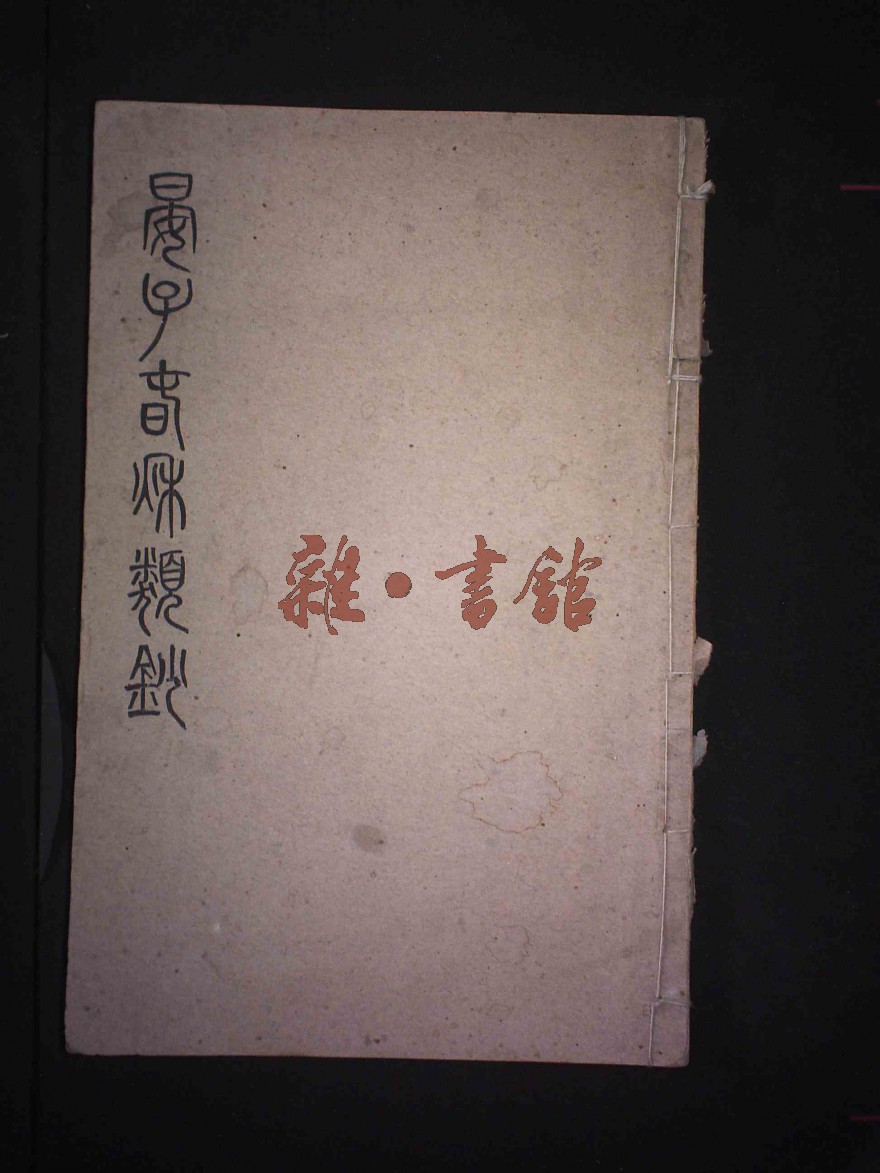 晏子春秋類鈔
雜·書館